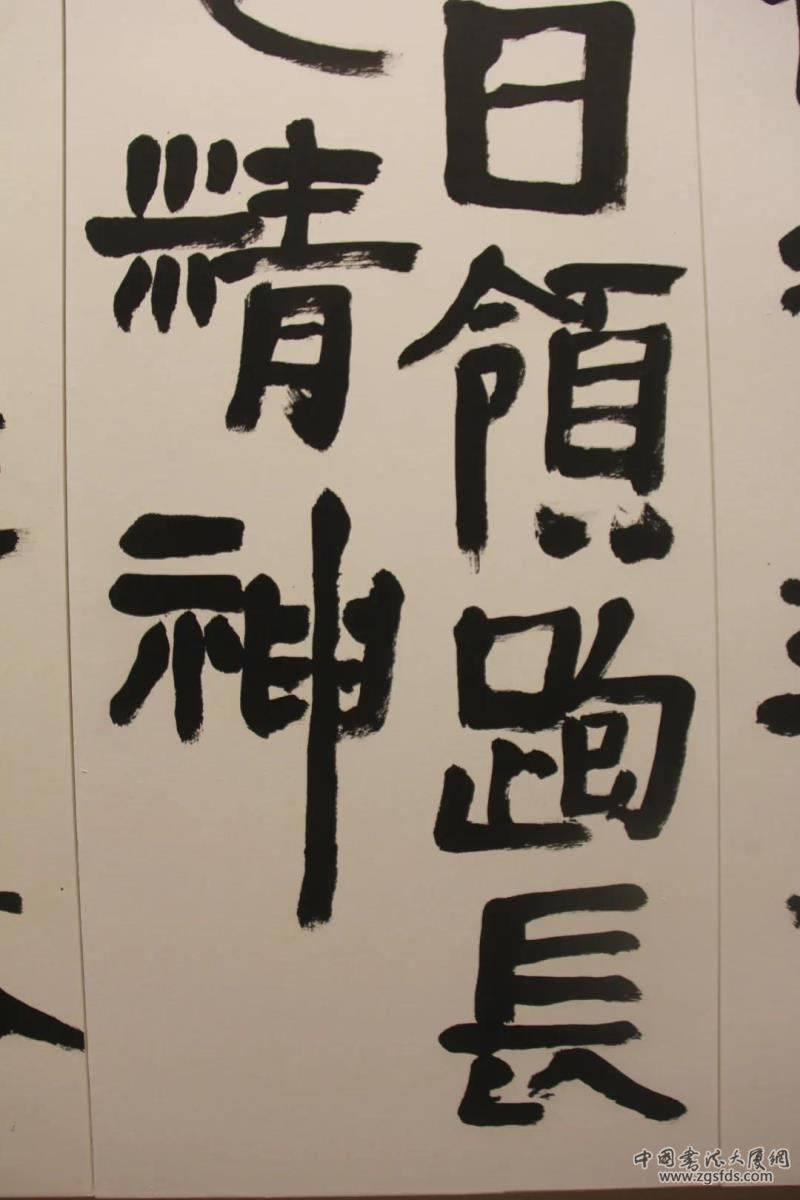 日領跑長
精神
中国书法大厦網
www.zgsfds.com